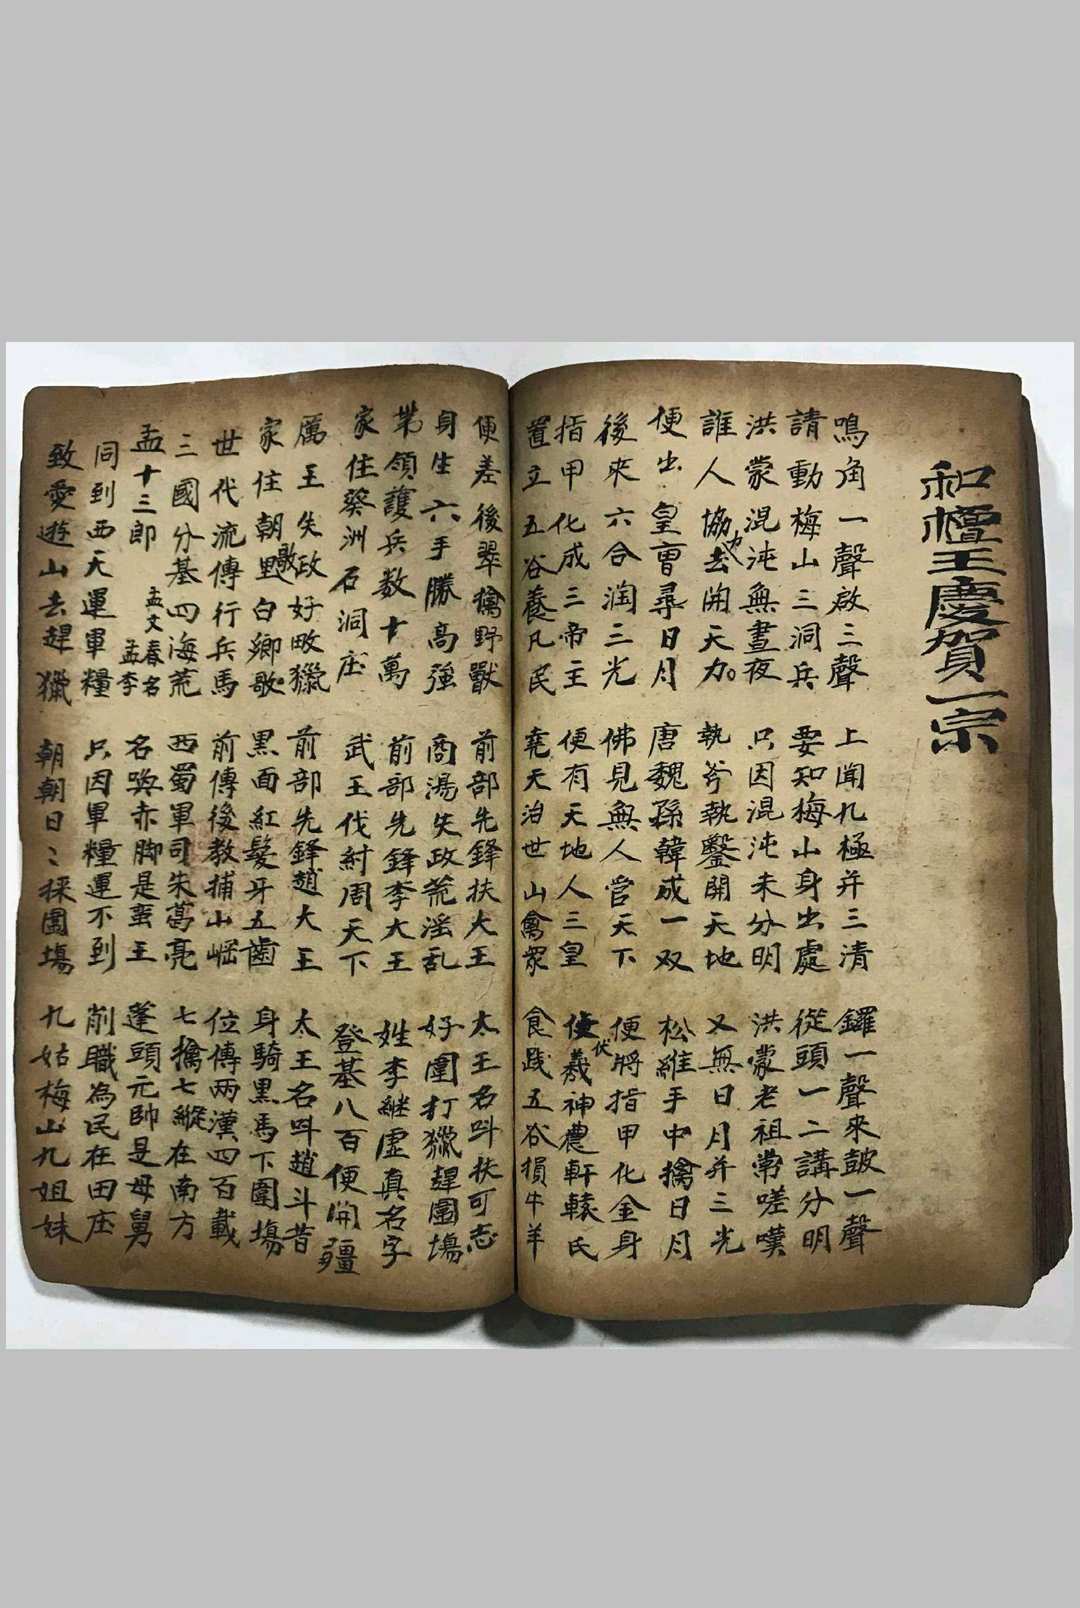 和檀王慶賀一宗
鳴角一聲啟三聲 上聞九極并三清 鑼一聲來鼓一聲
請動梅山三洞兵 要知梅山身出處 從頭一二講分明
洪蒙混沌無晝夜 只因混沌未分明 洪蒙老祖常嗟嘆
誰人協力去開天 執斧執鑿開天地 又無日月并三光
便出皇曺尋日月 唐魏孫韓成一双 松維手中擒日月
後來六合潤三光 佛見無人管天下 便將指甲化金身
指甲化成三帝主 便有天地人三皇 伏羲神農軒轅氏
置立五谷養凡民 堯天治世山禽眾 食践五谷損牛羊
便差後翠擒野獸 前部先鋒扶大王 太王名呌扶可志
身生六手勝高強 商湯失政荒淫乱 好圍打獵趕圍場
苐領護兵数十萬 前部先鋒李大王 姓李継虚真名字
家住葵洲石洞庄 武王伐紂周天下 登基八百便開疆
厲王失政好畋獵 前部先鋒趙大王 太王名呌趙斗昔
家住朝歌白卿 黑面紅髮牙五齒 身騎黑馬下圍場
世代流傳行兵馬 前傳後教捕山崛 位傳兩漢四百載
三國分基四海荒 西蜀軍司朱葛亮 七擒七縱在南方
孟十三郎 孟文春名孟李 名喚赤脚是蛮王 蓬頭元帥是母舅
同到西天運軍糧 只因軍糧運不到 削職為民在田庄
致愛遊山去趕獵 朝朝日〻採圍場 九姑梅山九姐妹